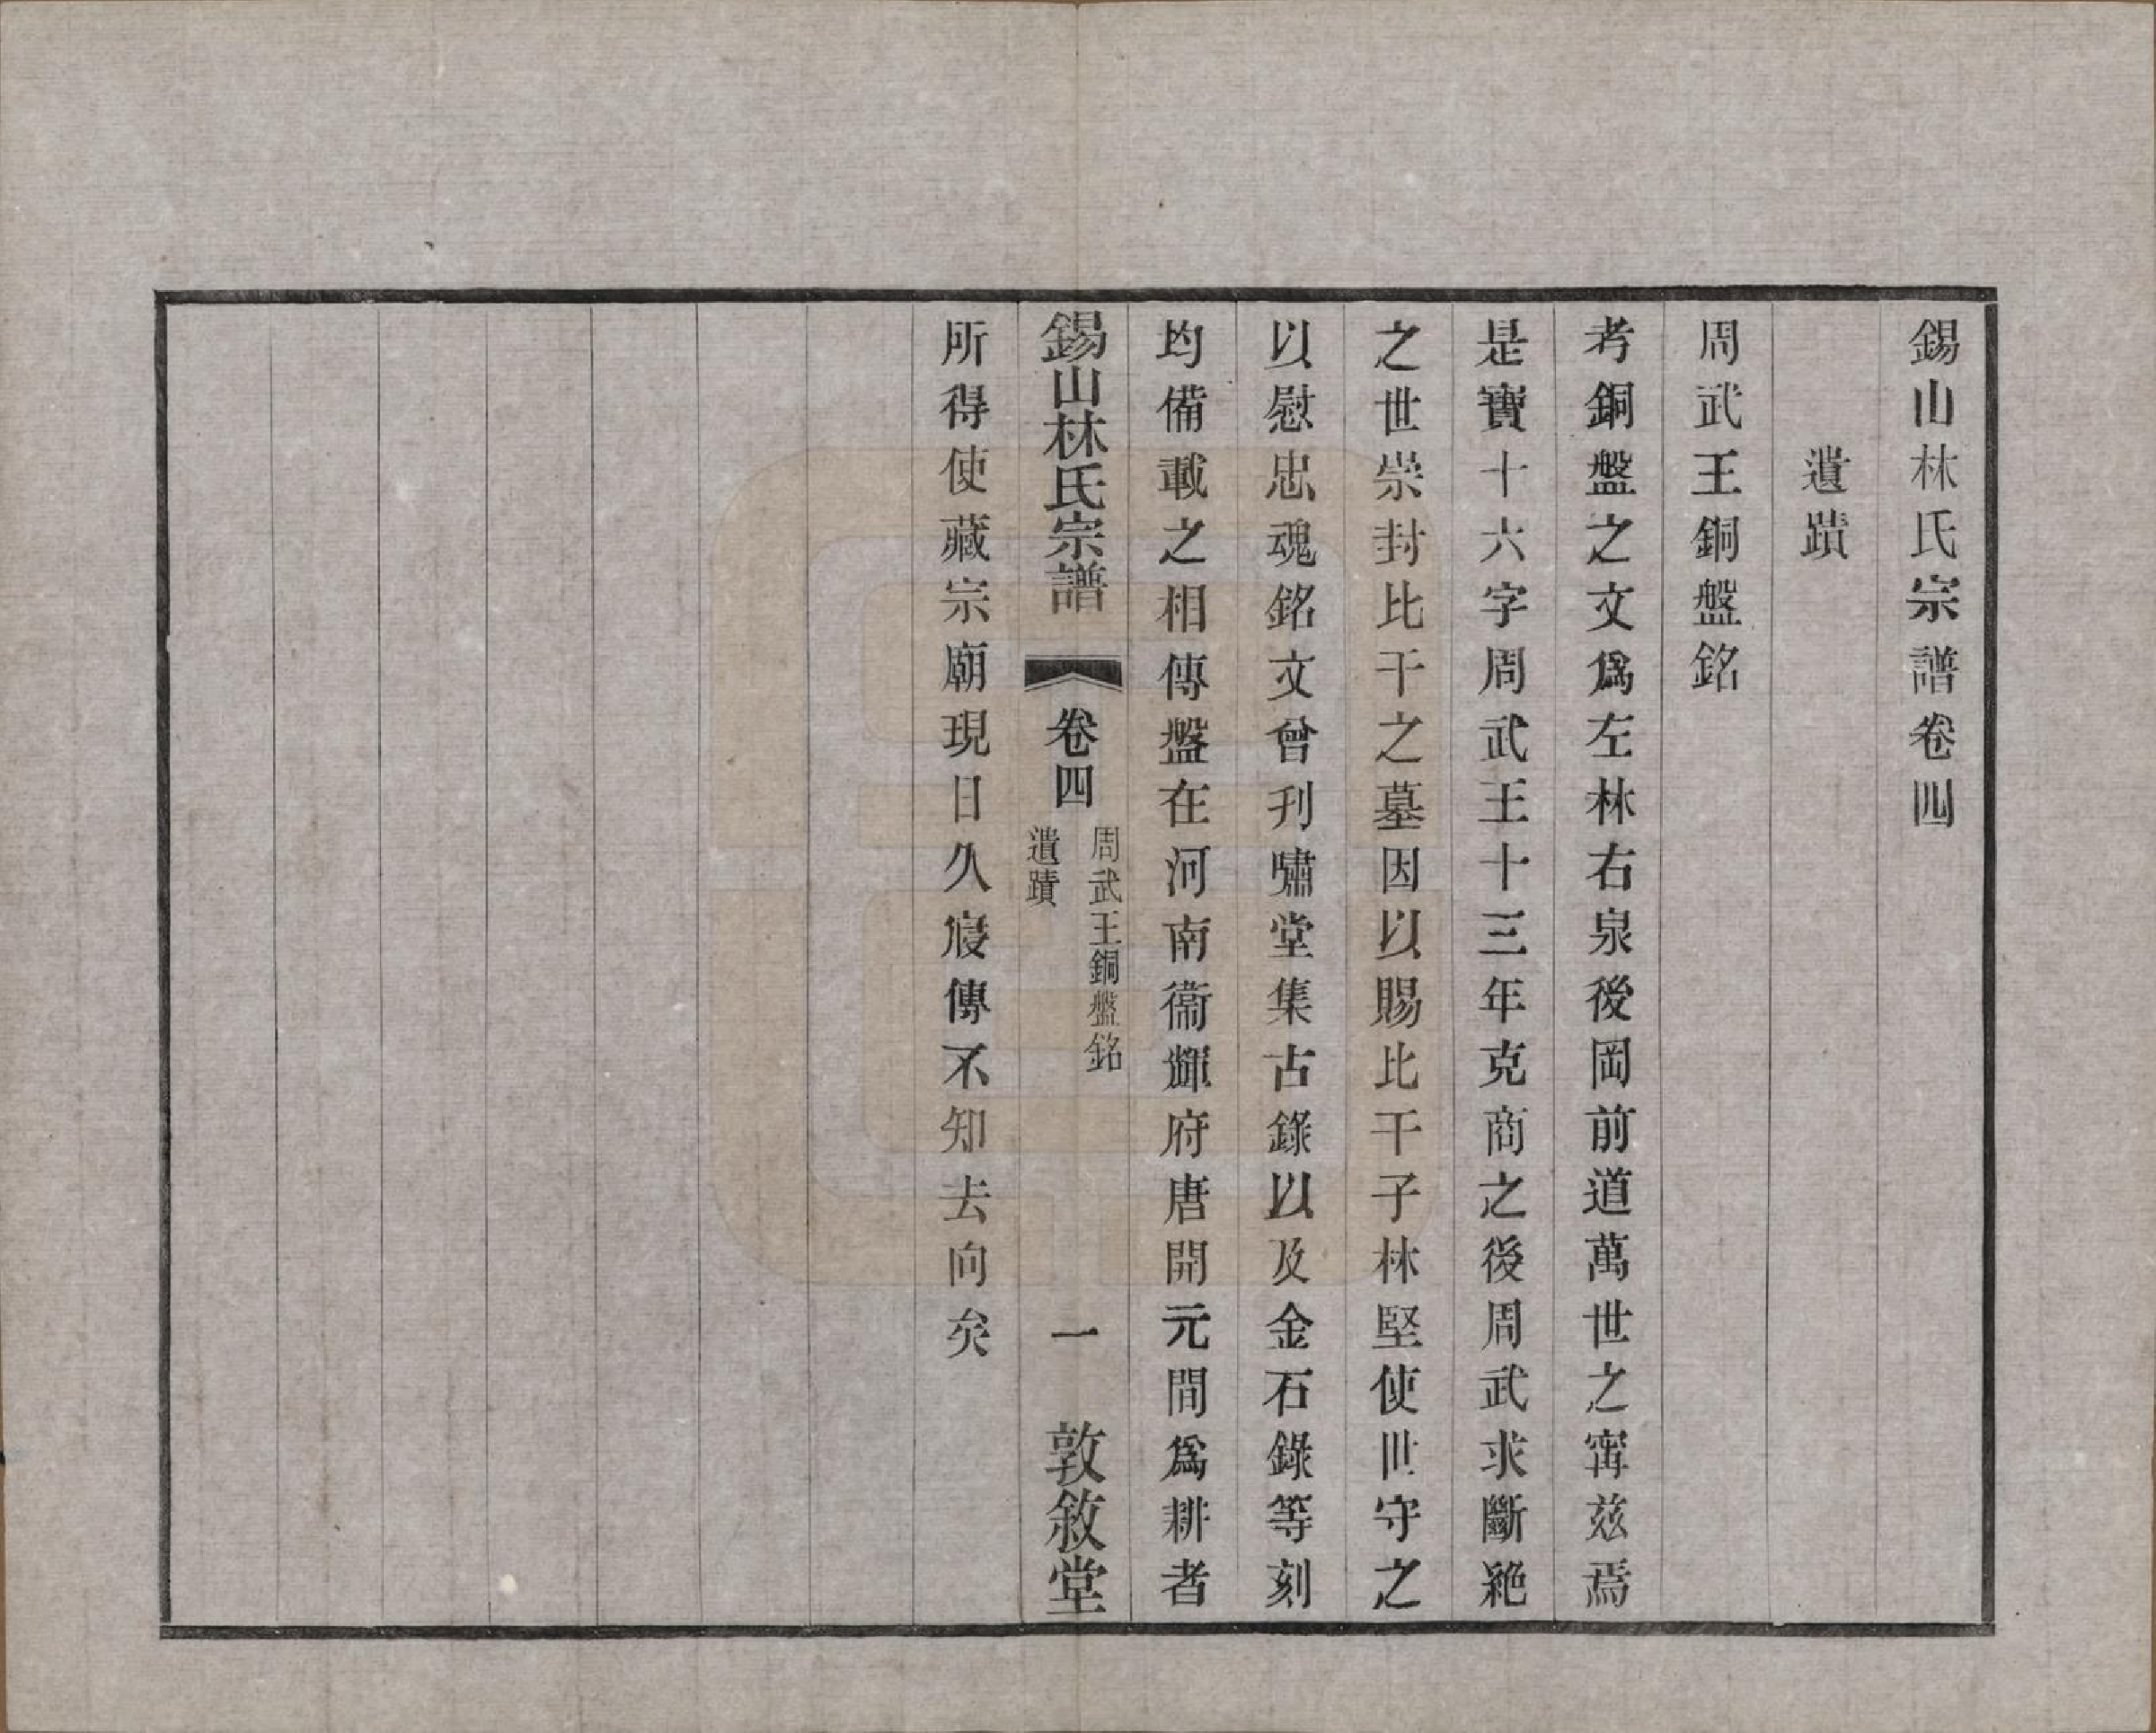 錫山林氏宗譜卷四
遺蹟
周武王銅盤銘
考銅盤之文爲左林右泉後岡前道萬世之甯茲焉
是寶十六字周武王十三年克商之後周武求斷絕
之世崇封比干之墓因以賜比干子林堅使世守之
以慰忠魂銘文曾刋嘯堂集古錄以及金石錄等刻
均備載之相傳盤在河南衞輝府唐開元間爲耕者
錫山林氏宗譜 卷四 周武王銅盤銘 遺蹟 一 敦敘堂
所得使藏宗廟現日久寖傳不知去向矣